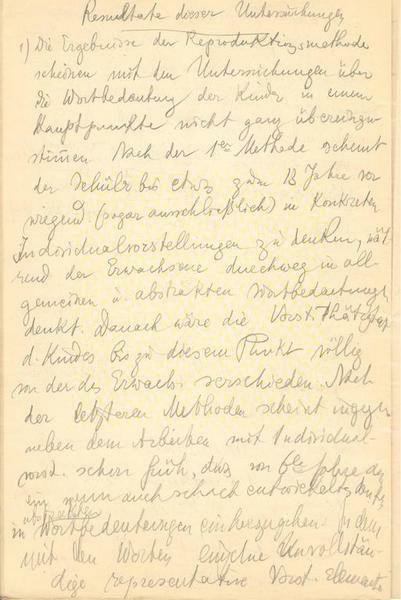 Resultate dieser Untersuchungen
1) Die Ergebnisse der Reproduktionsmethode
scheinen mit den Untersuchungen über
die Wortbedeutung der Kinder in einem
Hauptpunkte nicht ganz übereinzu-
stimmen Nach der 1en Methode scheint
der Schüler bis etwa zum 13 Jahre vor
wiegend (sogar ausschließlich) in konkreten
Individualvorstellungen zu denken, wäh
rend der Erwachsene durchweg in all-
gemeinen u. abstrakten Wortbedeutungen
denkt. Danach wäre die Vorst. Thätigkeit
d. Kindes bis zu diesem Punkt völlig
von der des Erwachs. verschieden. Nach
der letzteren Methoden scheint
neben dem Arbeiten mit Individual-
vorst. schon früh, das von
ein wenn auch schwach entwickeltes
abstrakten
in Wortbedeutungen einhergehen in dem
mit den Worten einzelne Unvollstän-
dige representative Vorst. Elemente